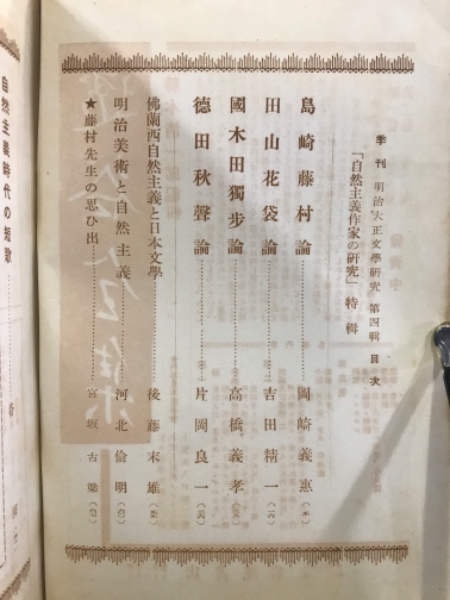 季刊 明治大正文學研究 第四輯 目次
「自然主義作家の研究」特輯
島崎藤村論 岡崎義惠
田山花袋論 吉田精一
國木田獨步論 高橋義孝
德田秋聲論 片岡良一
佛蘭西自然主義と日本文學 後藤末雄
明治美術と自然主義 河北倫明
★藤村先生の思ひ出 宮坂古梁
自然主義時代の短歌